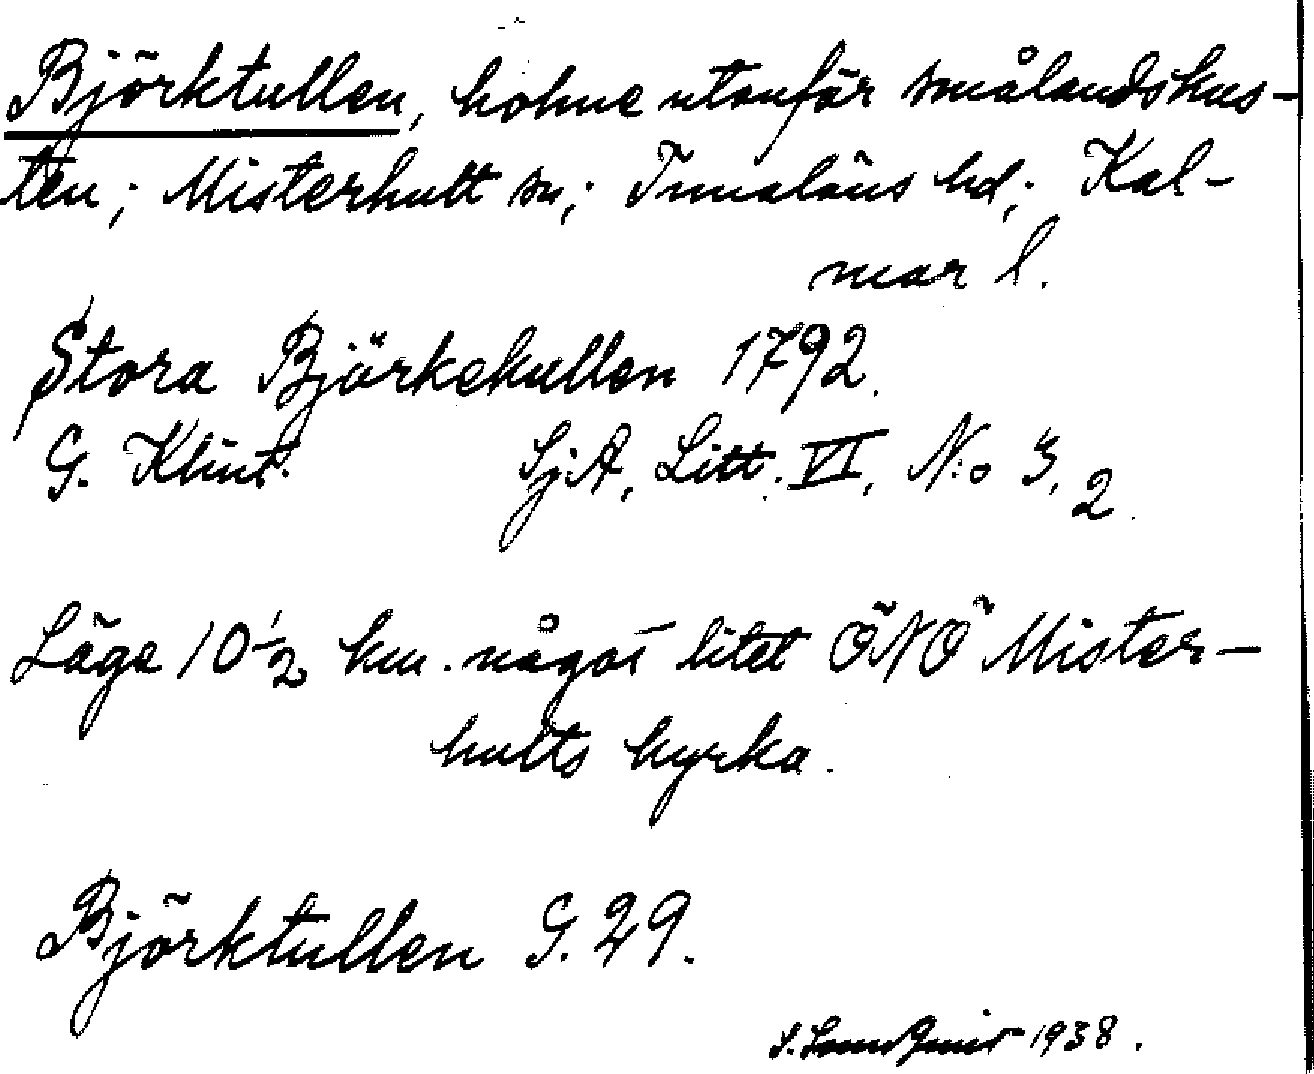 Björktullen, holme utanför smålandskus-
ten; Misterhult sn; Tunaläns hd; Kal-
mar l.
Stora Björkekullen 1792.
G. Klint. Sj.A, Litt. VI, N:o 3, 2.
Läge 10 1/2 km. något litet ÖNÖ Mister-
hults kyrka.
Björktullen G. 29.
1938.